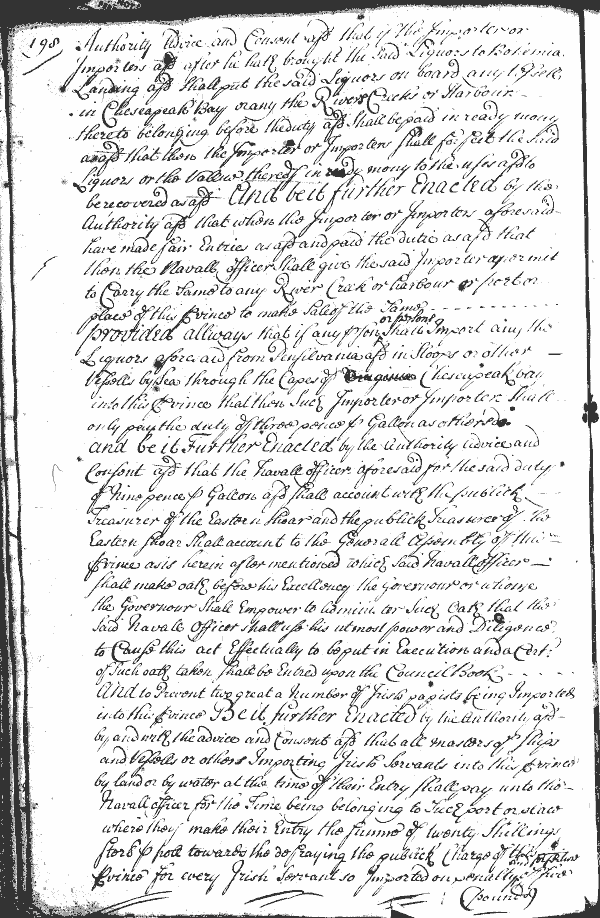 198
Authority Advice and Consent afsd that if the Importer or
Importers afsd after he hath brought the said Liquors to Bohemia
Landing afsd shall put the said Liquors on board any Vessell
in Cheseapeak Bay or any the Rivers Creeks or Harbour
thereto belonging before the duty afsd shall be paid in ready mony
as afsd that then the Importer or Importers shall forfeit the said
Liquors or the Vallue thereof in ready mony to the uses afsd to
be recovered as afsd And be it further Enacted by the
Authority afsd that when the Importer or Importers aforesaid
have made fair Entries as afsd and paid the dutie as afsd that
then the Navall officer shall give the said Importer a permit
to Carry the same to any River Creek or harbour or port or
place of this Province to make Sale of the Same
provided allways that if any pson or persons Shall Import any the
Liquors aforesaid from Pensilvania afsd in Sloops or other
Vessells by Sea through the Capes of Cheseapeak bay
into this Province that then Such Importer or Importers shall
only pay the duty of three pence p Gallon as others do
and be it Further Enacted by the Authority Advice and
Consent afsd that the Navall officer aforesaid for the said duty
of Nine pence p Gallon afsd shall account with the publick
Treasurer of the Eastern Shoar and the publick Treasurer of the
Eastern shoar Shall account to the Generall Assembly of this
Province as is herein after mentioned which said Navall officer
shall make oath before his Excellency the Governour or whome
the Governour Shall Empower to Administer Such Oath that the
Said Navale Officer shall use his utmost power and Diligence
to Cause this act Effectually to be put in Execution and a Cert:
of Such oath taken shall be Entred upon the Councill Book
And to Prevent two great a Number of Irish papists being Imported
into this Province Be it further Enacted by the Authority afsd
by and with the advice and Consent afsd that all masters of Ships
and Vessells or others Importing Irish Servants into this Province
by land or by water at the time of their Entry Shall pay unto the
Navall officer for the Time being belonging to Such port or place
where they make their Entry the summe of twenty Shillings
Sterl p poll towards the defraying the publick Charge of this
Province for every Irish Servant so Imported on penalty of five
(pounds